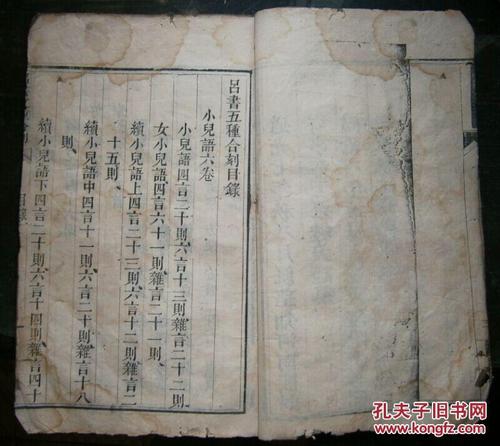 呂書五種合刻目錄
小兒語六卷
小兒語四言二十則六言十三則雜言二十二則
女小兒語四言六十一則雜言二十一則
續小兒語上四言二十三則六言十二則雜言二
十五則
續小兒語中四言十一則六言二十則雜言十八
則
續小兒語下四言二十則六言十四則雜言四十
目錄
孔夫子旧书网
KONGFZ.COM